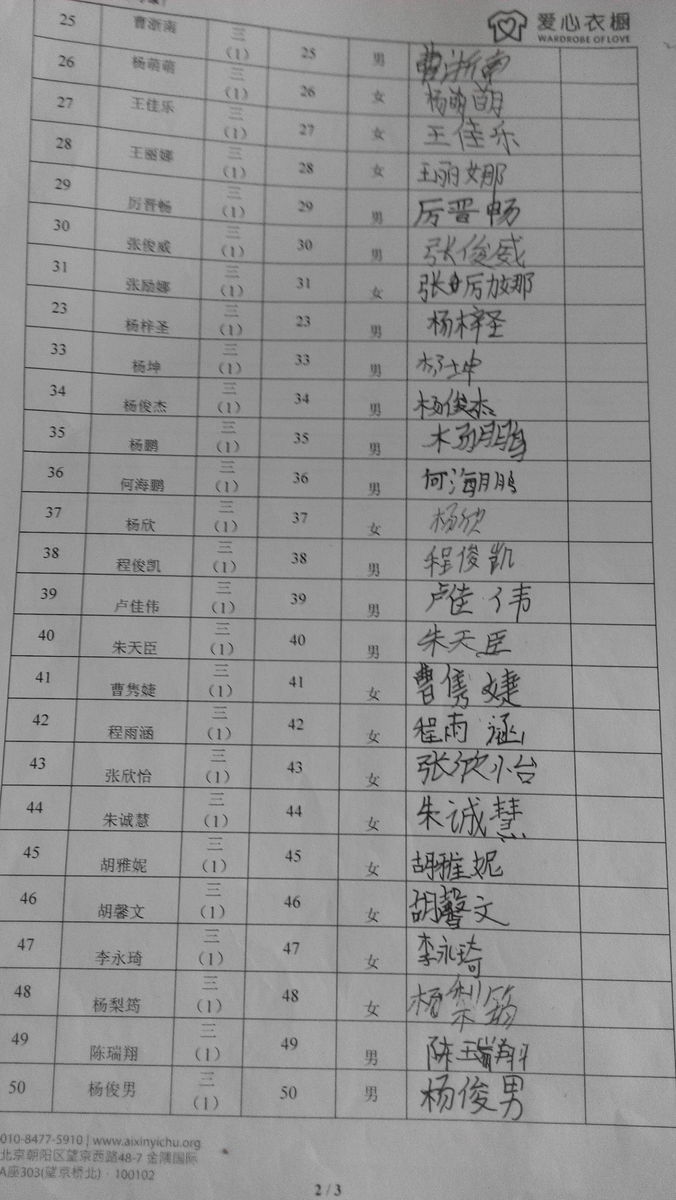 爱心衣橱
WARDROBE OF LOVE
25 曹浙南 三(1) 25 男 曹浙南
26 杨萌萌 三(1) 26 女 杨萌萌
27 王佳乐 三(1) 27 女 王佳乐
28 王丽娜 三(1) 28 女 王丽娜
29 厉晋畅 三(1) 29 男 厉晋畅
30 张俊威 三(1) 30 男 张俊威
31 张励娜 三(1) 31 女 张励娜
23 杨梓圣 三(1) 23 男 杨梓圣
33 杨坤 三(1) 33 男 杨坤
34 杨俊杰 三(1) 34 男 杨俊杰
35 杨鹏 三(1) 35 男 杨鹏
36 何海鹏 三(1) 36 男 何海鹏
37 杨欣 三(1) 37 女 杨欣
38 程俊凯 三(1) 38 男 程俊凯
39 卢佳伟 三(1) 39 男 卢佳伟
40 朱天臣 三(1) 40 男 朱天臣
41 曹隽婕 三(1) 41 女 曹隽婕
42 程雨涵 三(1) 42 女 程雨涵
43 张欣怡 三(1) 43 女 张欣怡
44 朱诚慧 三(1) 44 女 朱诚慧
45 胡雅妮 三(1) 45 女 胡雅妮
46 胡馨文 三(1) 46 女 胡馨文
47 李永琦 三(1) 47 女 李永琦
48 杨梨筠 三(1) 48 女 杨梨筠
49 陈瑞翔 三(1) 49 男 陈瑞翔
50 杨俊男 三(1) 50 男 杨俊男
010-8477-5910 | www.aixinyichu.org
北京朝阳区望京西路48-7 金隅国际
A座303(望京桥北) · 100102
2 / 3